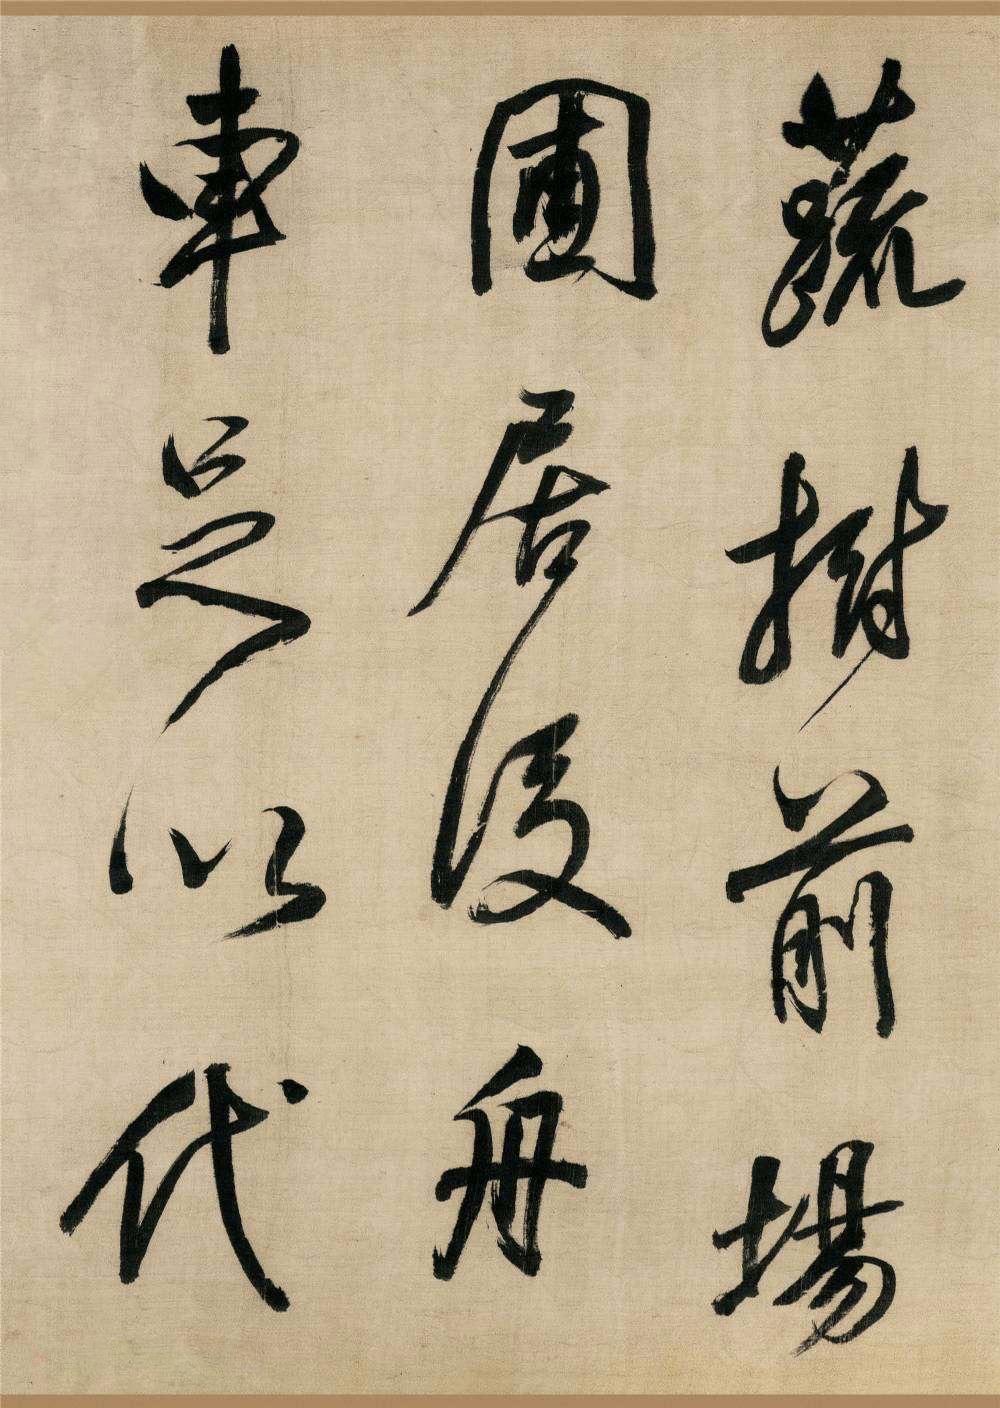 蔬樹前場
圃居後舟
車足以代